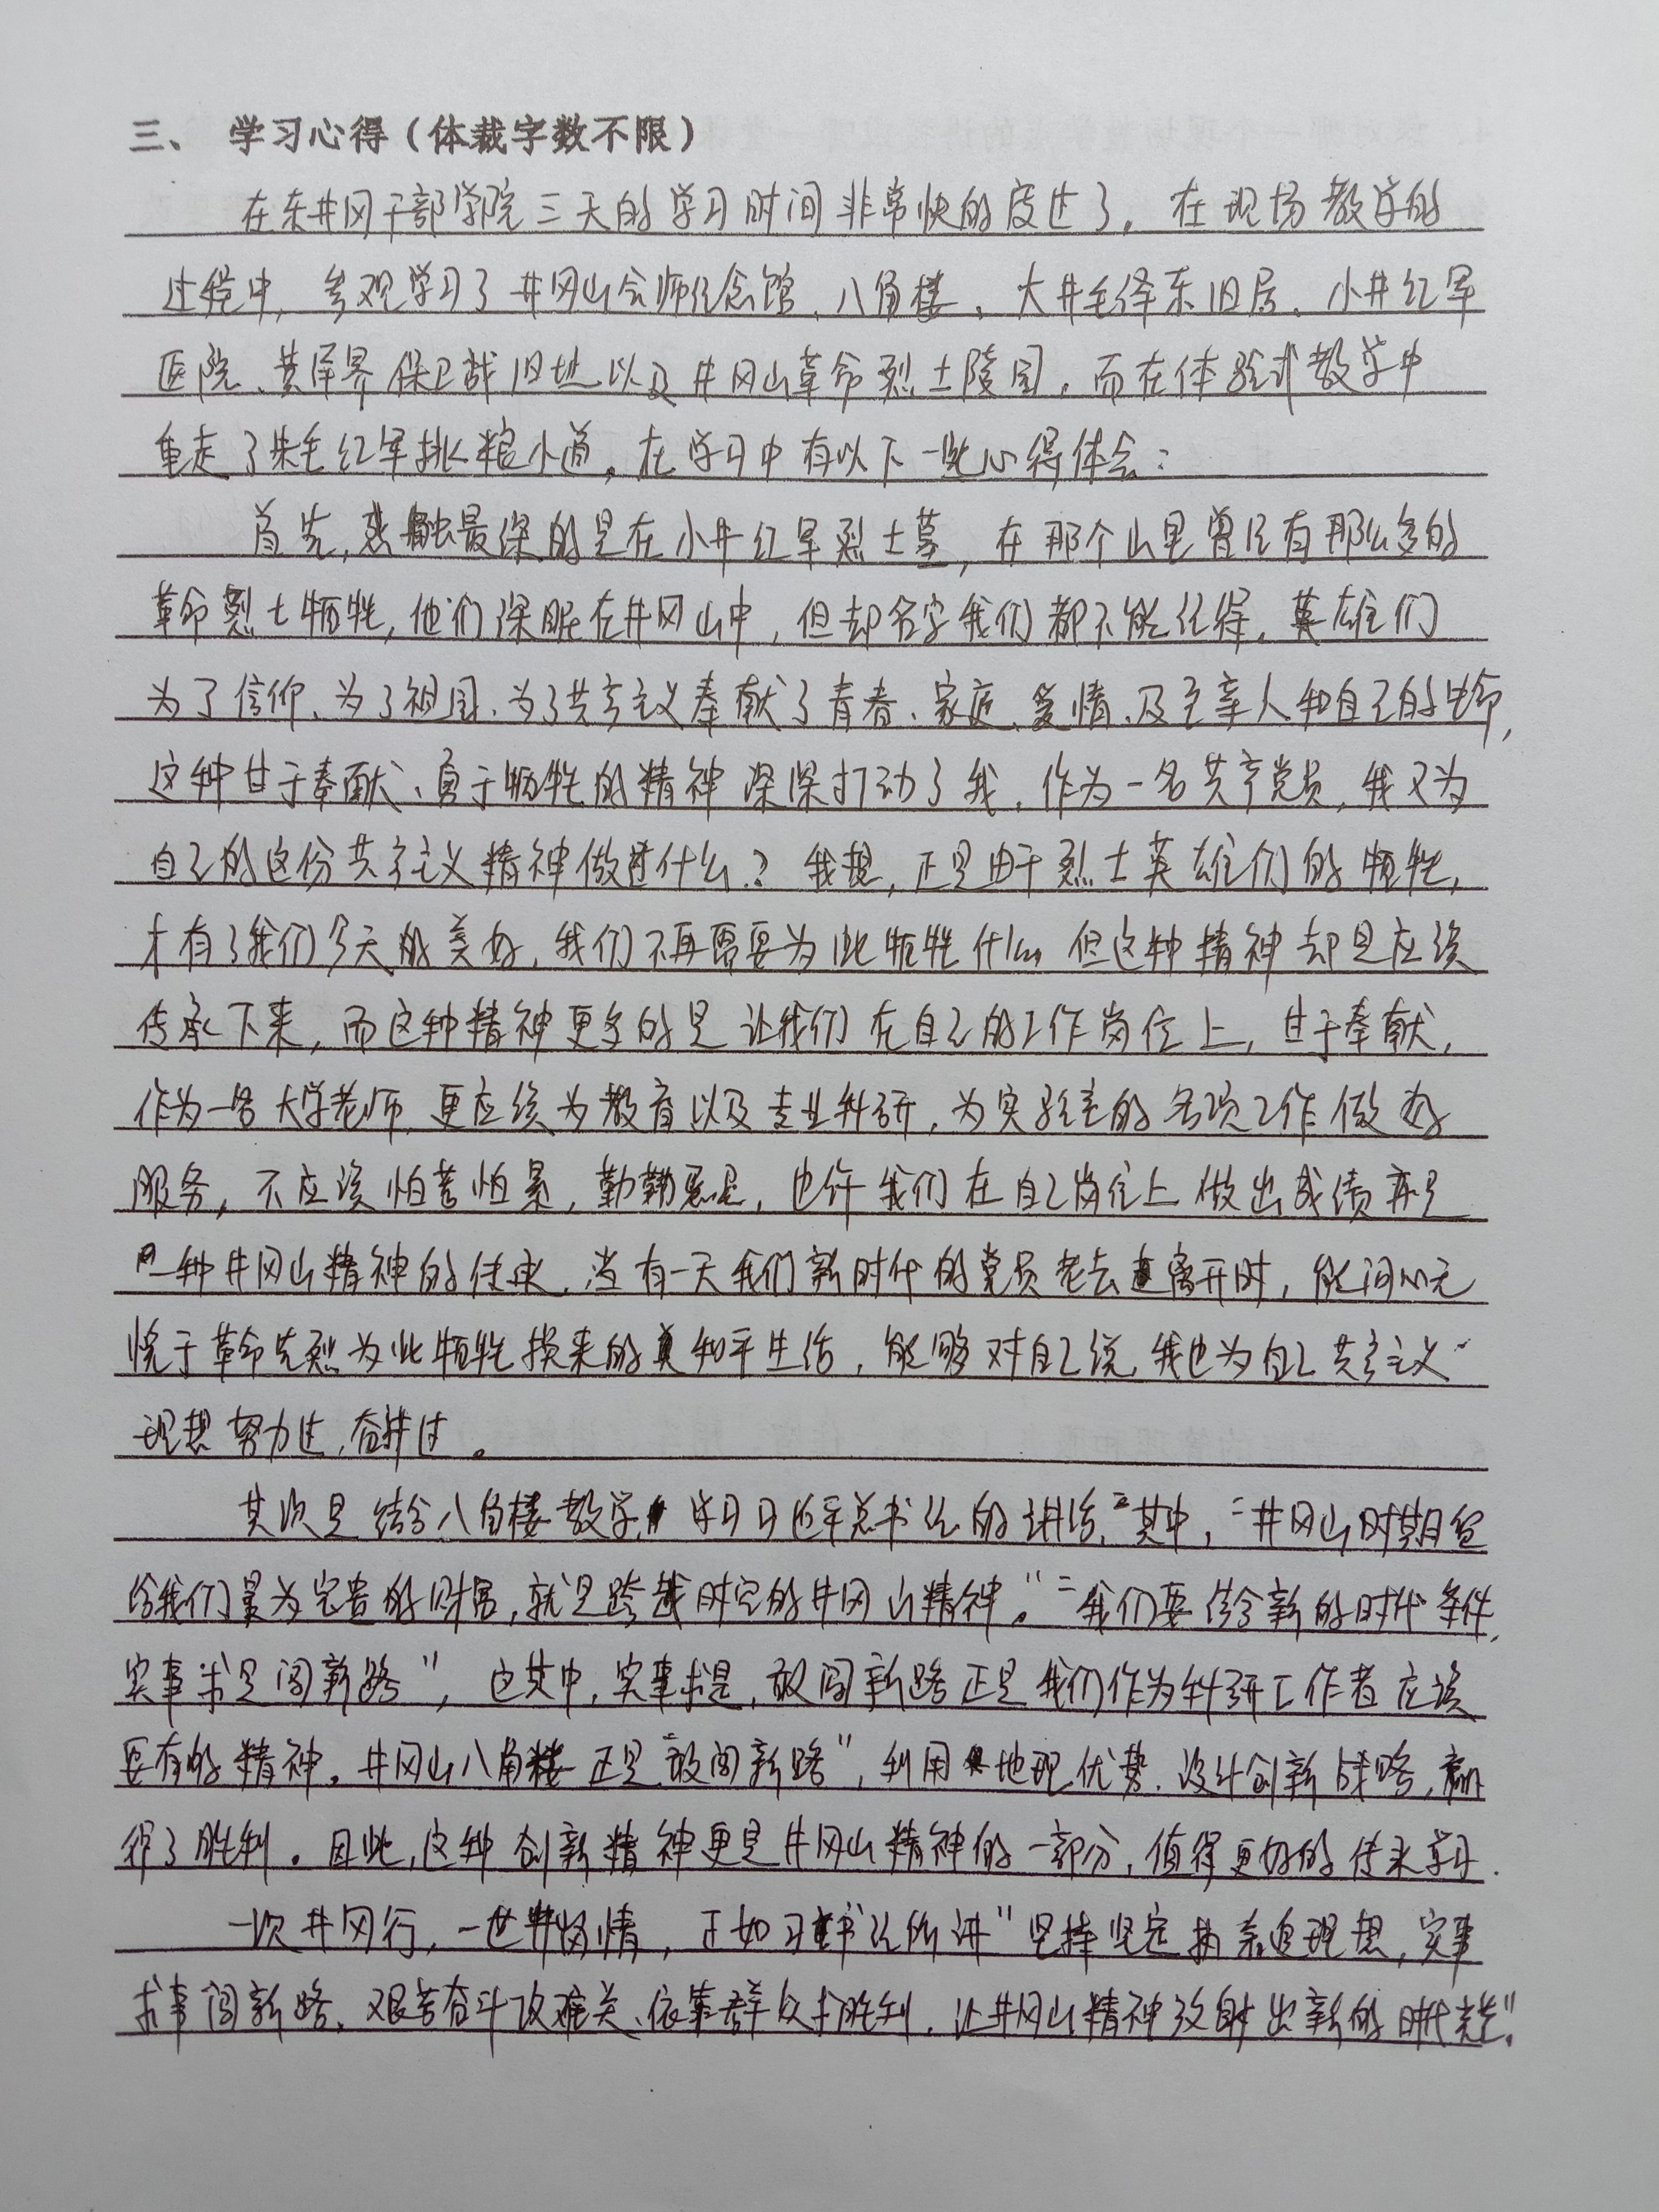 三、 学习心得（体裁字数不限）
在东井冈干部学院三天的学习时间非常快的度过了。在现场教学的
过程中，参观学习了井冈山会师纪念馆、八角楼、大井毛泽东旧居、小井红军
医院、黄洋界保卫战旧址以及井冈山革命烈士陵园。而在体验式教学中
重走了朱毛红军挑粮小道。在学习中有以下一些心得体会：
首先，感触最深的是在小井红军烈士墓，在那个山里曾经有那么多的
革命烈士牺牲，他们深眠在井冈山中，但却名字我们都不能记得。英雄们
为了信仰、为了祖国、为了共产主义奉献了青春、家庭、爱情、及至亲人和自己的生命，
这种甘于奉献、勇于牺牲的精神深深打动了我。作为一名共产党员，我又为
自己的这份共产主义精神做过什么？我想，正是由于烈士英雄们的牺牲，
才有了我们今天的美好，我们不再需要为此牺牲什么。但这种精神却是应该
传承下来，而这种精神更多的是让我们在自己的工作岗位上，甘于奉献，
作为一名大学老师，更应该为教育以及专业科研，为实验室的各项工作做好
服务，不应该怕苦怕累，勤勤恳恳，也许我们在自己岗位上做出成绩亦是
一种井冈山精神的传承。当有一天我们新时代的党员老去离开时，能问心无
愧于革命先烈为此牺牲换来的和平生活，能够对自己说，我也为自己共产主义
理想努力过，奋斗过。
其次是结合八角楼教学，学习习近平总书记的讲话，其中，“井冈山时期留
给我们最为宝贵的财富，就是跨越时空的井冈山精神。”“我们要结合新的时代条件，
实事求是闯新路”，这其中，实事求是，敢闯新路正是我们作为科研工作者应该
要有的精神。井冈山八角楼正是“敢闯新路”，利用地理优势，设计创新战略，赢
得了胜利。因此，这种创新精神更是井冈山精神的一部分，值得更好的传承学习。
一次井冈行，一世井冈情，正如习书记所讲“坚持坚定执着追理想，实事
求事闯新路，艰苦奋斗攻难关、依靠群众求胜利，让井冈山精神放射出新的时代光芒”。